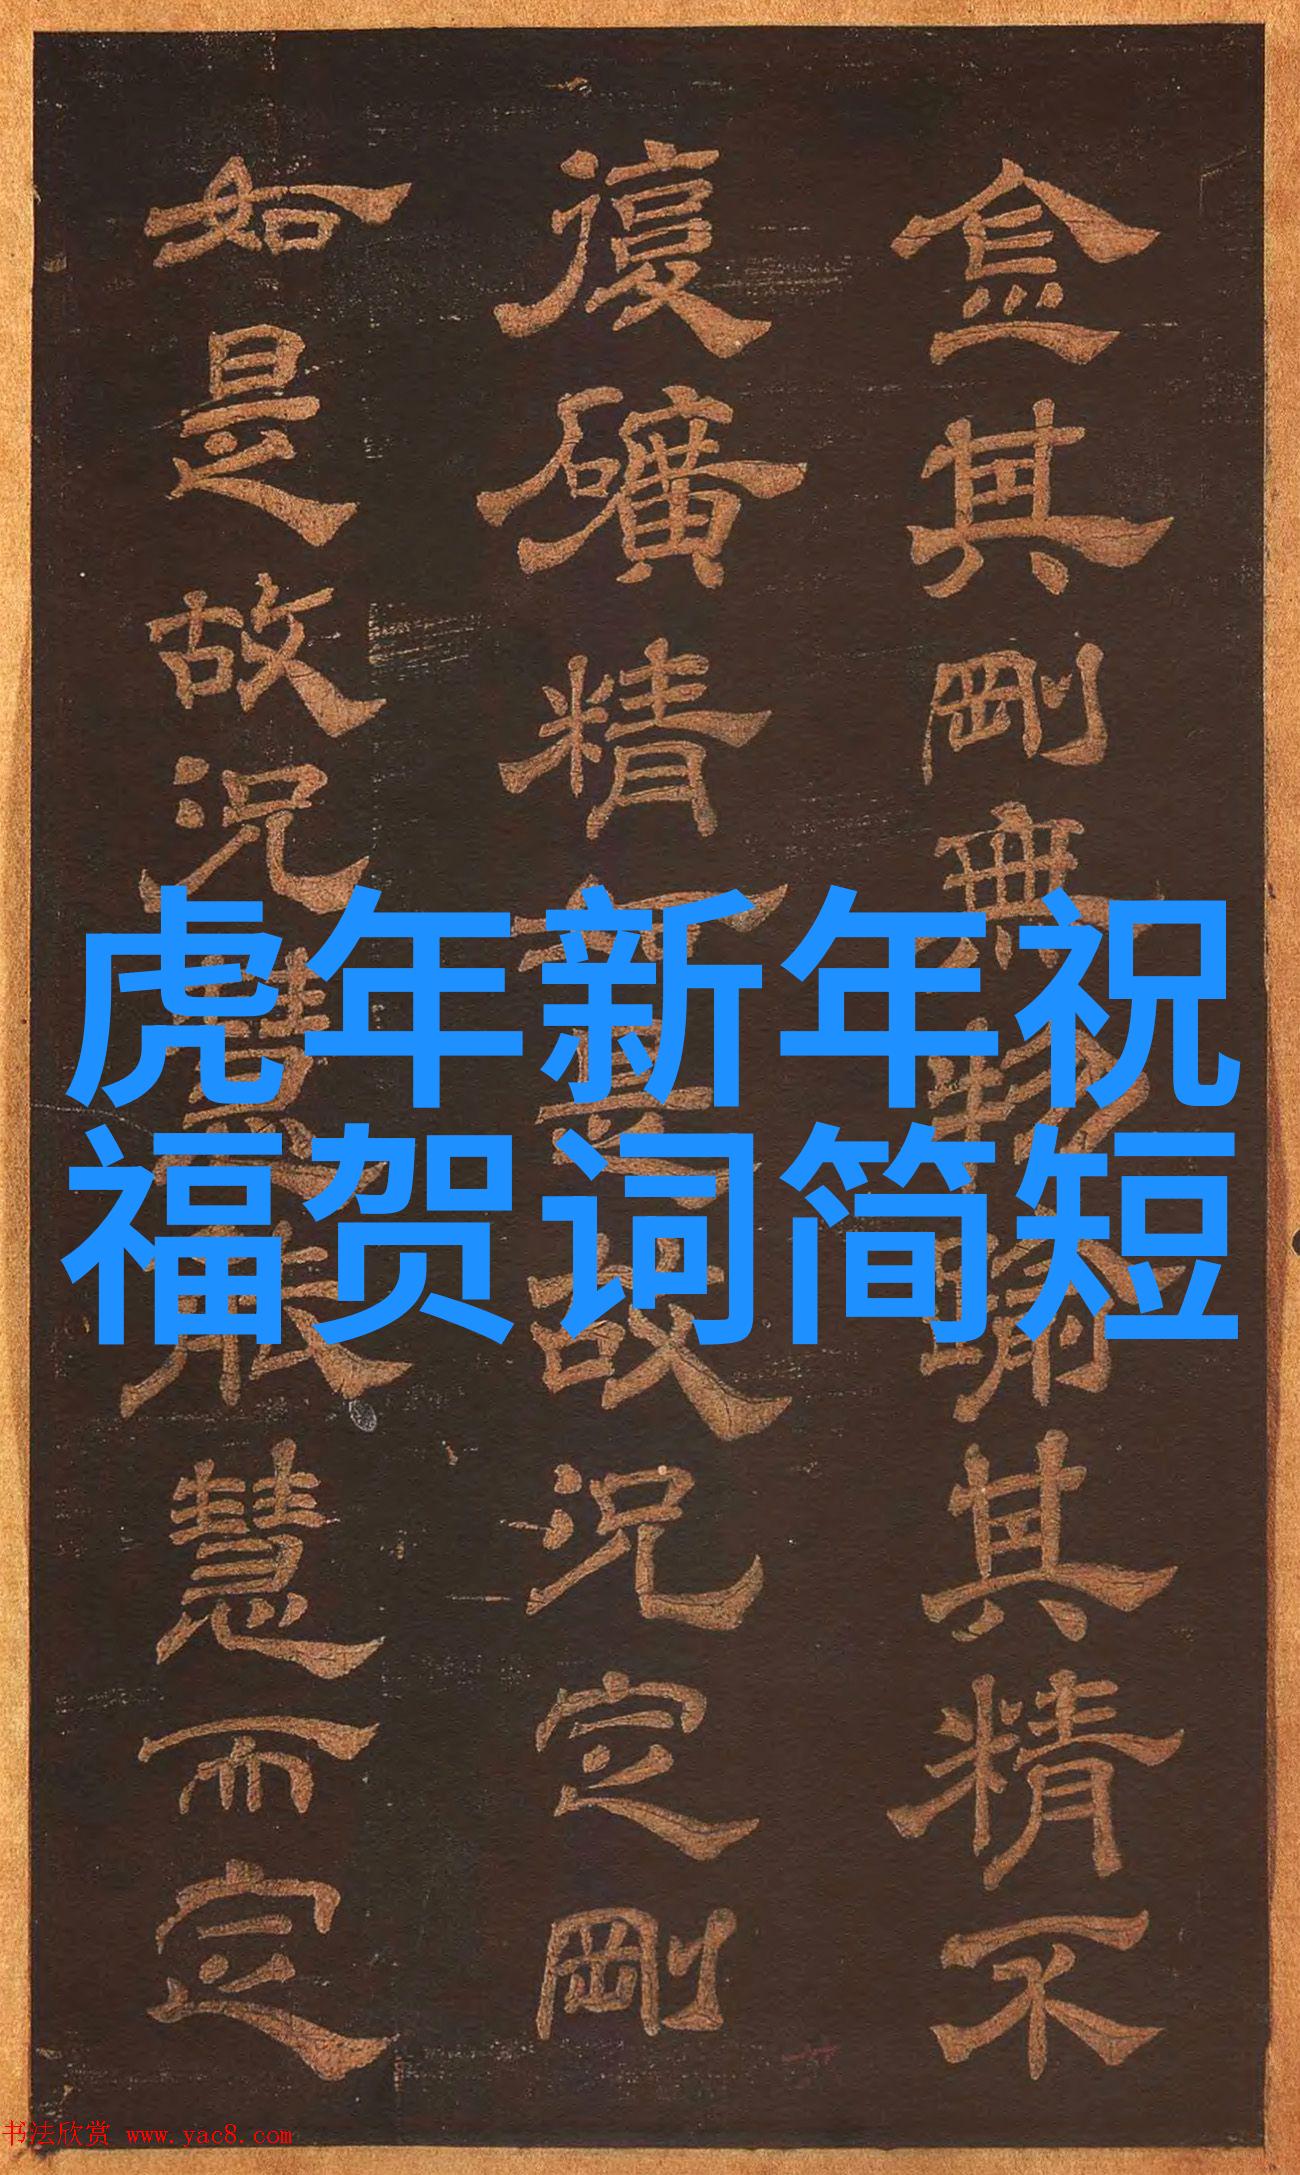 金其剛無物喻其精不
復礦精故況定剛
如是故況般慧而定
虎年新年祝
福贺词简短
书法欣赏 www.yac8.com